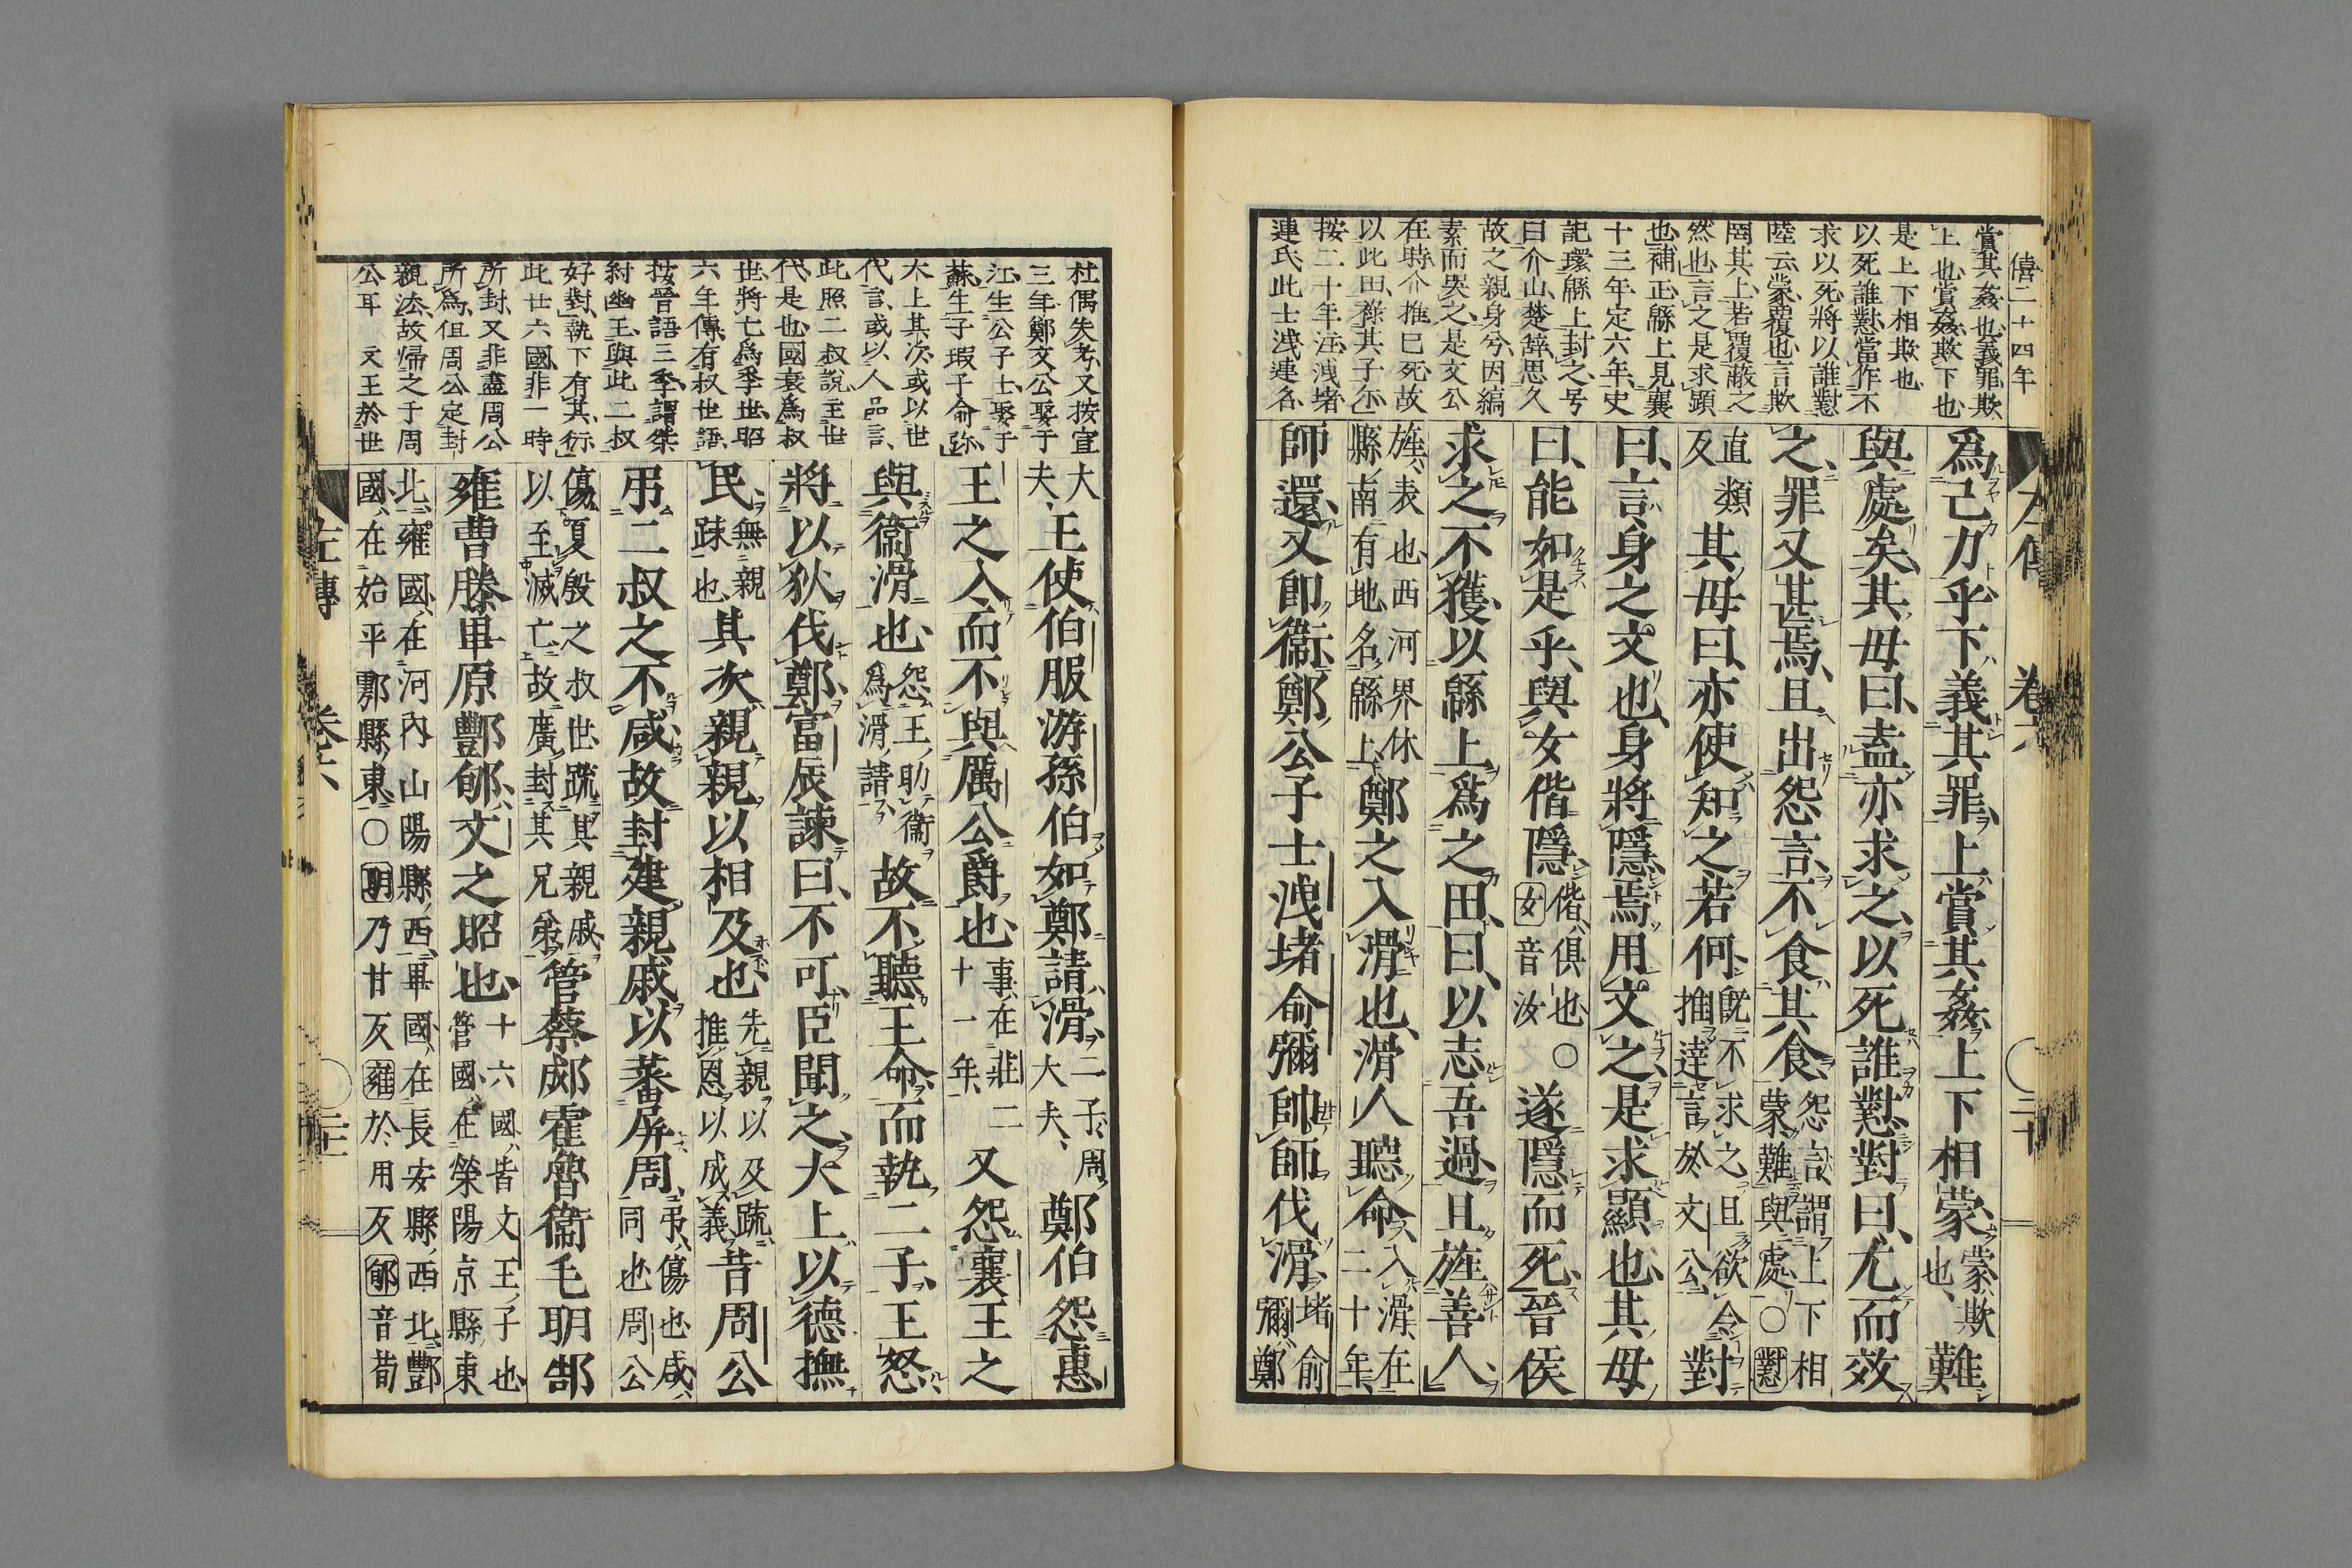 僖二十四年
賞其姦也義罪欺
上也賞姦欺下也
是上下相欺也
以死誰懟當作不
求以死將以誰懟
陸云蒙覆也言欺
罔其上若覆蔽之
然也言之是求顕
也補正緜上見襄
十三年定六年史
記環緜上封之号
曰介山楚辞思久
故之親身兮因縞
素而哭之是文公
在時介推已死故
以此田祿其子尓
按二十年注洩堵
連氏此士洩連名
爲己力乎下義其罪上賞其姦上下相蒙蒙欺也難
與處矣其母曰盍亦求之以死誰懟對曰尤而效
之罪又甚焉且出怨言不食其食怨言謂上下相蒙難與處〇懟
直類反其母曰亦使知之若何既不求之且欲令推達言於文公對
曰言身之文也身將隱焉用文之是求顯也其母
曰能如是乎與女偕隱偕俱也〇女音汝遂隱而死晉侯
求之不獲以緜上爲之田曰以志吾過且旌善人
旌表也西河界休縣南有地名緜上鄭之入滑也滑人聽命入滑在二十年
師還又卽衞鄭公子士洩堵俞彌帥師伐滑堵俞彌鄭
左傳 卷六 二十
杜偶失考又按宣
三年鄭文公娶于
江生公子士娶于
蘇生子瑕子俞弥
大上其次或以世
代言或以人品言
此照二叔說主世
代是也國衰爲叔
世將亡爲季世昭
六年傳有叔世語
按晉語三季謂桀
紂幽王與此二叔
好對執下有其衍
此廿六國非一時
所封又非盡周公
所爲但周公定封
親法故帰之于周
公耳 文王於世
大夫王使伯服游孫伯如鄭請滑二子周大夫鄭伯怨惠
王之入而不與厲公爵也事在莊二十一年又怨襄王之
與衞滑也怨王助衞爲滑請故不聽王命而執二子王怒
將以狄伐鄭富辰諫曰不可臣聞之大上以德撫
民無親踈也其次親親以相及也先親以及疏推恩以成義昔周公
弔二叔之不咸故封建親戚以蕃屏周弔傷也咸同也周公
傷夏殷之叔世疏其親戚以至滅亡故廣封其兄弟管蔡郕霍魯衞毛聃郜
雍曹滕畢原酆郇文之昭也十六國皆文王子也管國在滎陽京縣東
北雍國在河內山陽縣西畢國在長安縣西北酆國在始平鄠縣東〇聃乃甘反雍於用反郇音荀
左傳 卷六 二十一